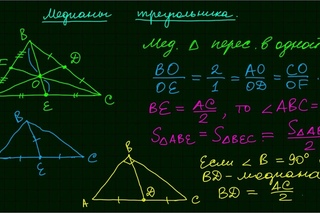 Медианы треугольника.
Мед. Δ перес. в одной
BO/OE = 2/1 = AO/OD = CO/OF.
BE = AC/2, то ∠ABC =
S△ABE = S△BEC = S△AB/2
Если ∠B = 90°
BD - медиана
BD = AC/2
B
D
O
E
C
B
E
C
B
A
D
C